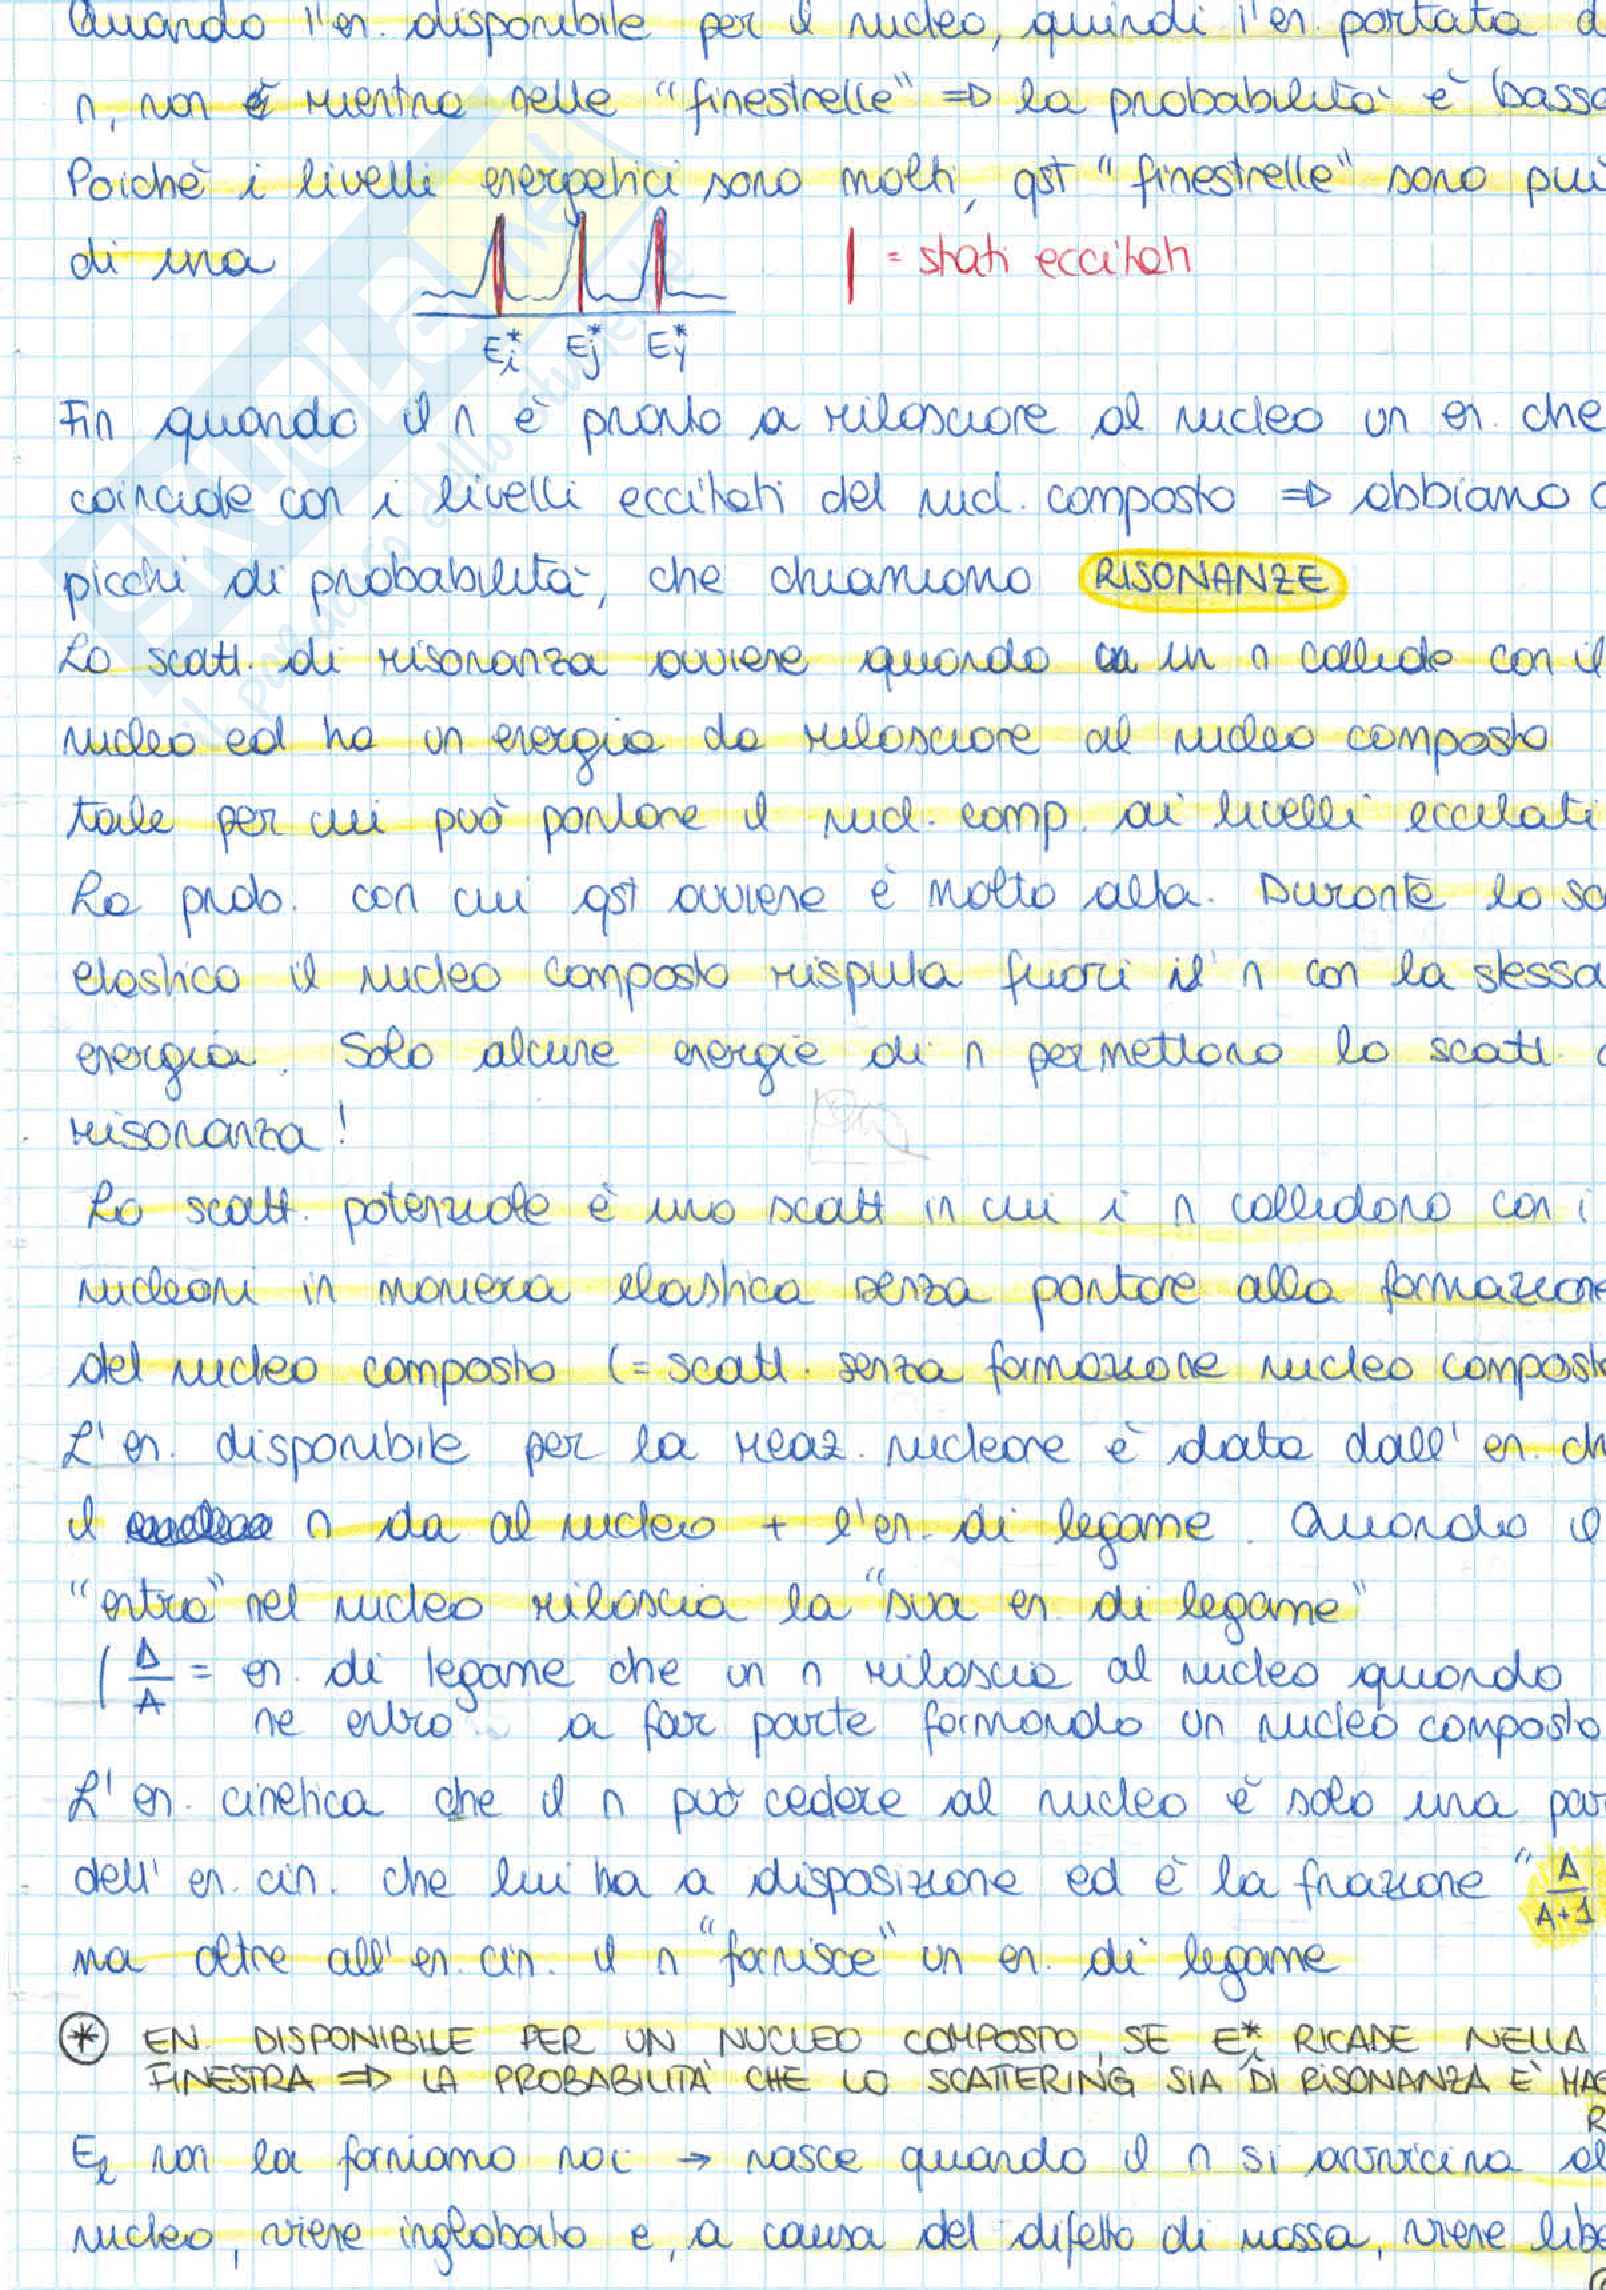 Quando l'en. disponibile per il nucleo, quindi l'en. portata d
n, non è rientra nelle "finestrelle" => la probabilità è bassa
Poichè i livelli energetici sono molti, qst "finestrelle" sono più
di una
| = stati eccitati
Ei* Ej* Ey*
Fin quando il n è pronto a rilasciare al nucleo un en. che
coincide con i livelli eccitati del nucl. composto => abbiamo
picchi di probabilità, che chiamiamo RISONANZE
Lo scatt. di risonanza avviene quando un n collide con il
nucleo ed ha un energia da rilasciare al nucleo composto
tale per cui può portare il nucl. comp. ai livelli eccitati
La prob. con cui qst avviene è molto alta. Durante lo sc
elastico il nucleo composto risputa fuori il n con la stessa
energia. Solo alcune energie di n permettono lo scatt.
risonanza!
Lo scatt. potenziale è uno scatt in cui i n collidono con i
nucleoni in maniera elastica senza portare alla formazione
del nucleo composto (= scatt. senza formazione nucleo composto
L'en. disponibile per la reaz. nucleare è data dall'en. ch
il n da al nucleo + l'en. di legame. Quando il
"entra" nel nucleo rilascia la "sua en. di legame"
( Δ/A = en. di legame che un n rilascia al nucleo quando
ne entra a far parte formando un nucleo composto
L'en. cinetica che il n può cedere al nucleo è solo una par
dell'en. cin. che lui ha a disposizione ed è la frazione "A/A+1
ma oltre all'en. cin. il n "fornisce" un en. di legame
(*) EN. DISPONIBILE PER UN NUCLEO COMPOSTO, SE Ei* RICADE NELLA
FINESTRA => LA PROBABILITÀ CHE LO SCATTERING SIA DI RISONANZA È MAG
R
El non la forniamo noi → nasce quando il n si avvicina al
nucleo, viene inglobato e, a causa del difetto di massa, viene libe